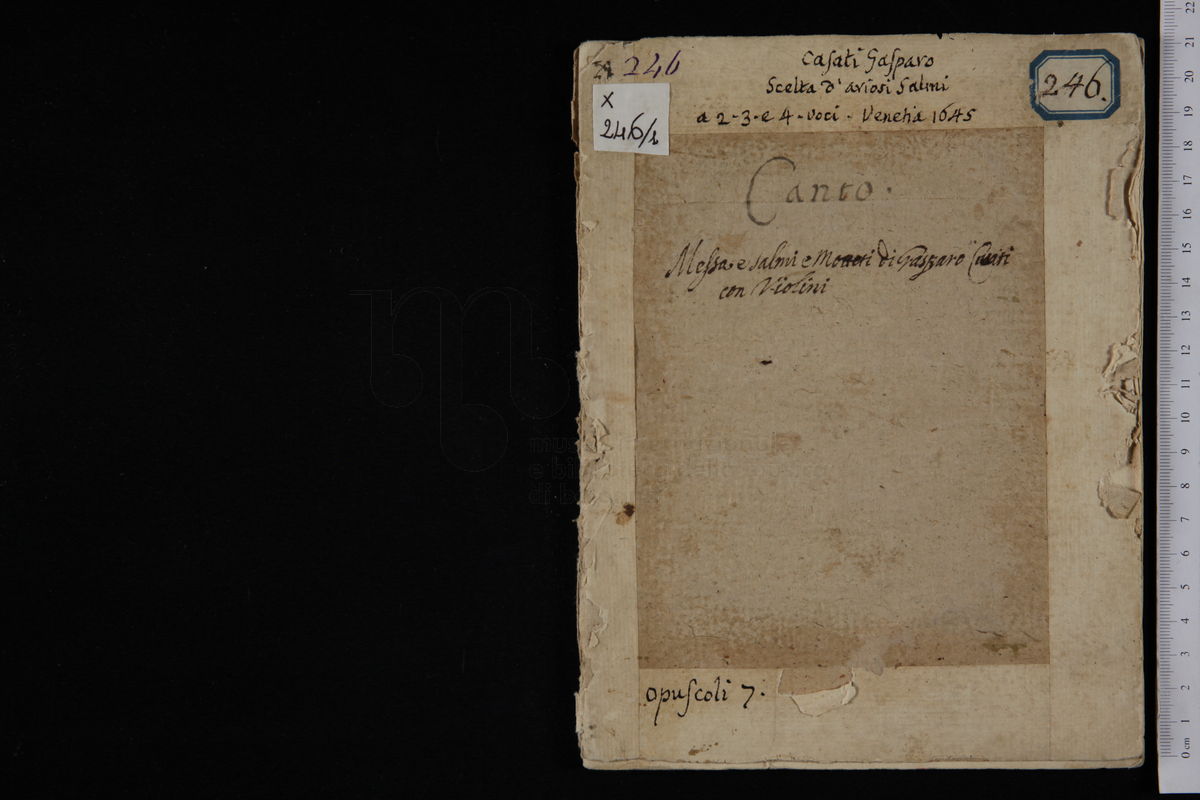 246
Casati Gasparo
Scelta d'ariosi Salmi
a 2-3-e 4-voci - Venetia 1645
246.
X
246/1
Canto.
Messa e salmi e Moteti di Gasparo Casati
con Violini
opuscoli 7.
museo
e biblioteca della musica
di b
0 cm 1 2 3 4 5 6 7 8 9 10 11 12 13 14 15 16 17 18 19 20 21 22